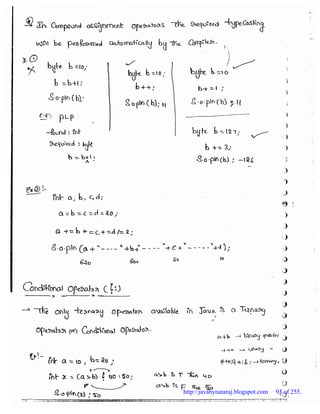 In Compound assignment operators the required typecasting
will be performed automatically by the compiler.
Ex ①
byte b=10;
b = b+1;
S.o.pln(b);
byte b=10;
b++;
S.o.pln(b); 11
byte b=10
b+=1;
S.o.pln(b); 11
C.E: PLP
found: int
required: byte
b = b+1;
byte b=127;
b+=3;
S.o.pln(b); -126
Ex②:-
int a, b, c, d;
a=b=c=d=20;
a+=b*=c+=d/=2;
S.o.pln(a+"----"+b+"----"+c+"----"+d);
620 600 30 10
Conditional operator (?:)
→ The only ternary operator available in Java is a Ternary
Operator (or) Conditional Operator.
a+b → binary operator
++a → unary "
Ex:- int a=10, b=20;
int x = (a>b) ? 40 : 50;
a>b is T then 40
a>b is F
S.o.pln(x); 50
http://javabynataraj.blogspot.com 91 of 255.